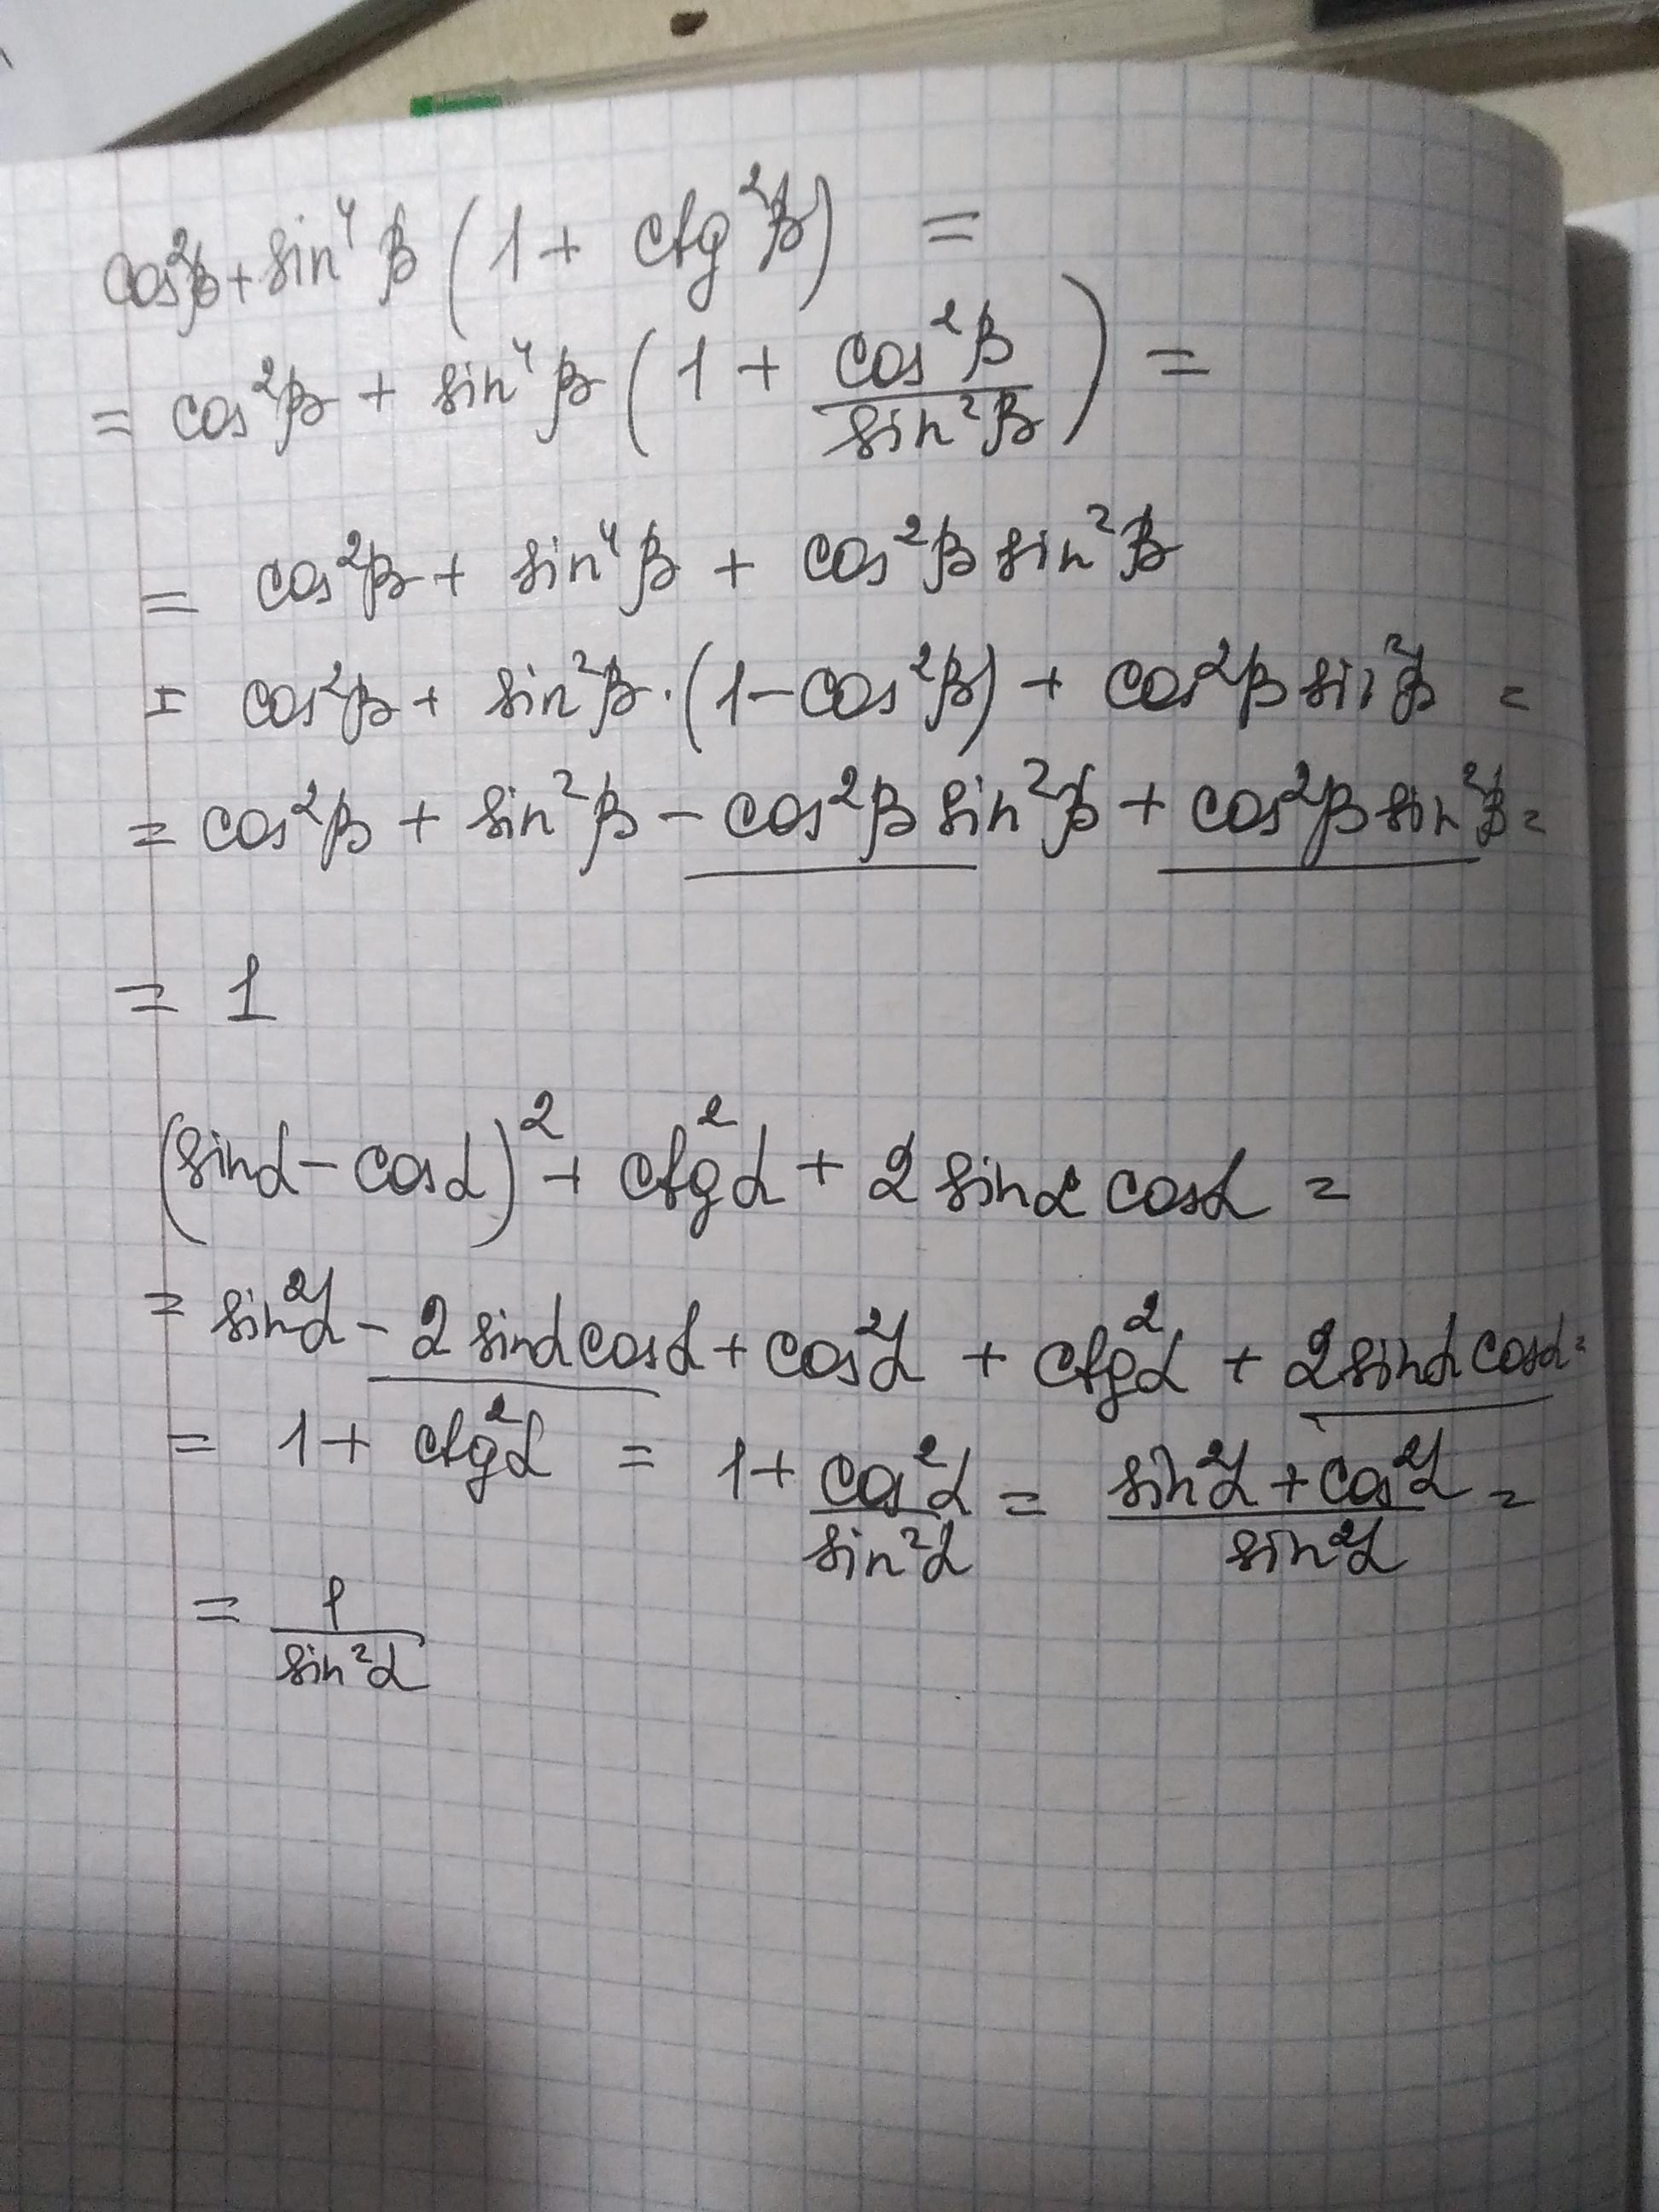 cos²β + sin⁴β (1 + ctg²β) =
= cos²β + sin⁴β (1 + cos²β / sin²β) =
= cos²β + sin⁴β + cos²β sin²β
= cos²β + sin²β · (1 - cos²β) + cos²β sin²β =
= cos²β + sin²β - cos²β sin²β + cos²β sin²β =
= 1
(sinα - cosα)² + ctg²α + 2 sinα cosα =
= sin²α - 2 sinα cosα + cos²α + ctg²α + 2 sinα cosα =
= 1 + ctg²α = 1 + cos²α / sin²α = (sin²α + cos²α) / sin²α =
= 1 / sin²α